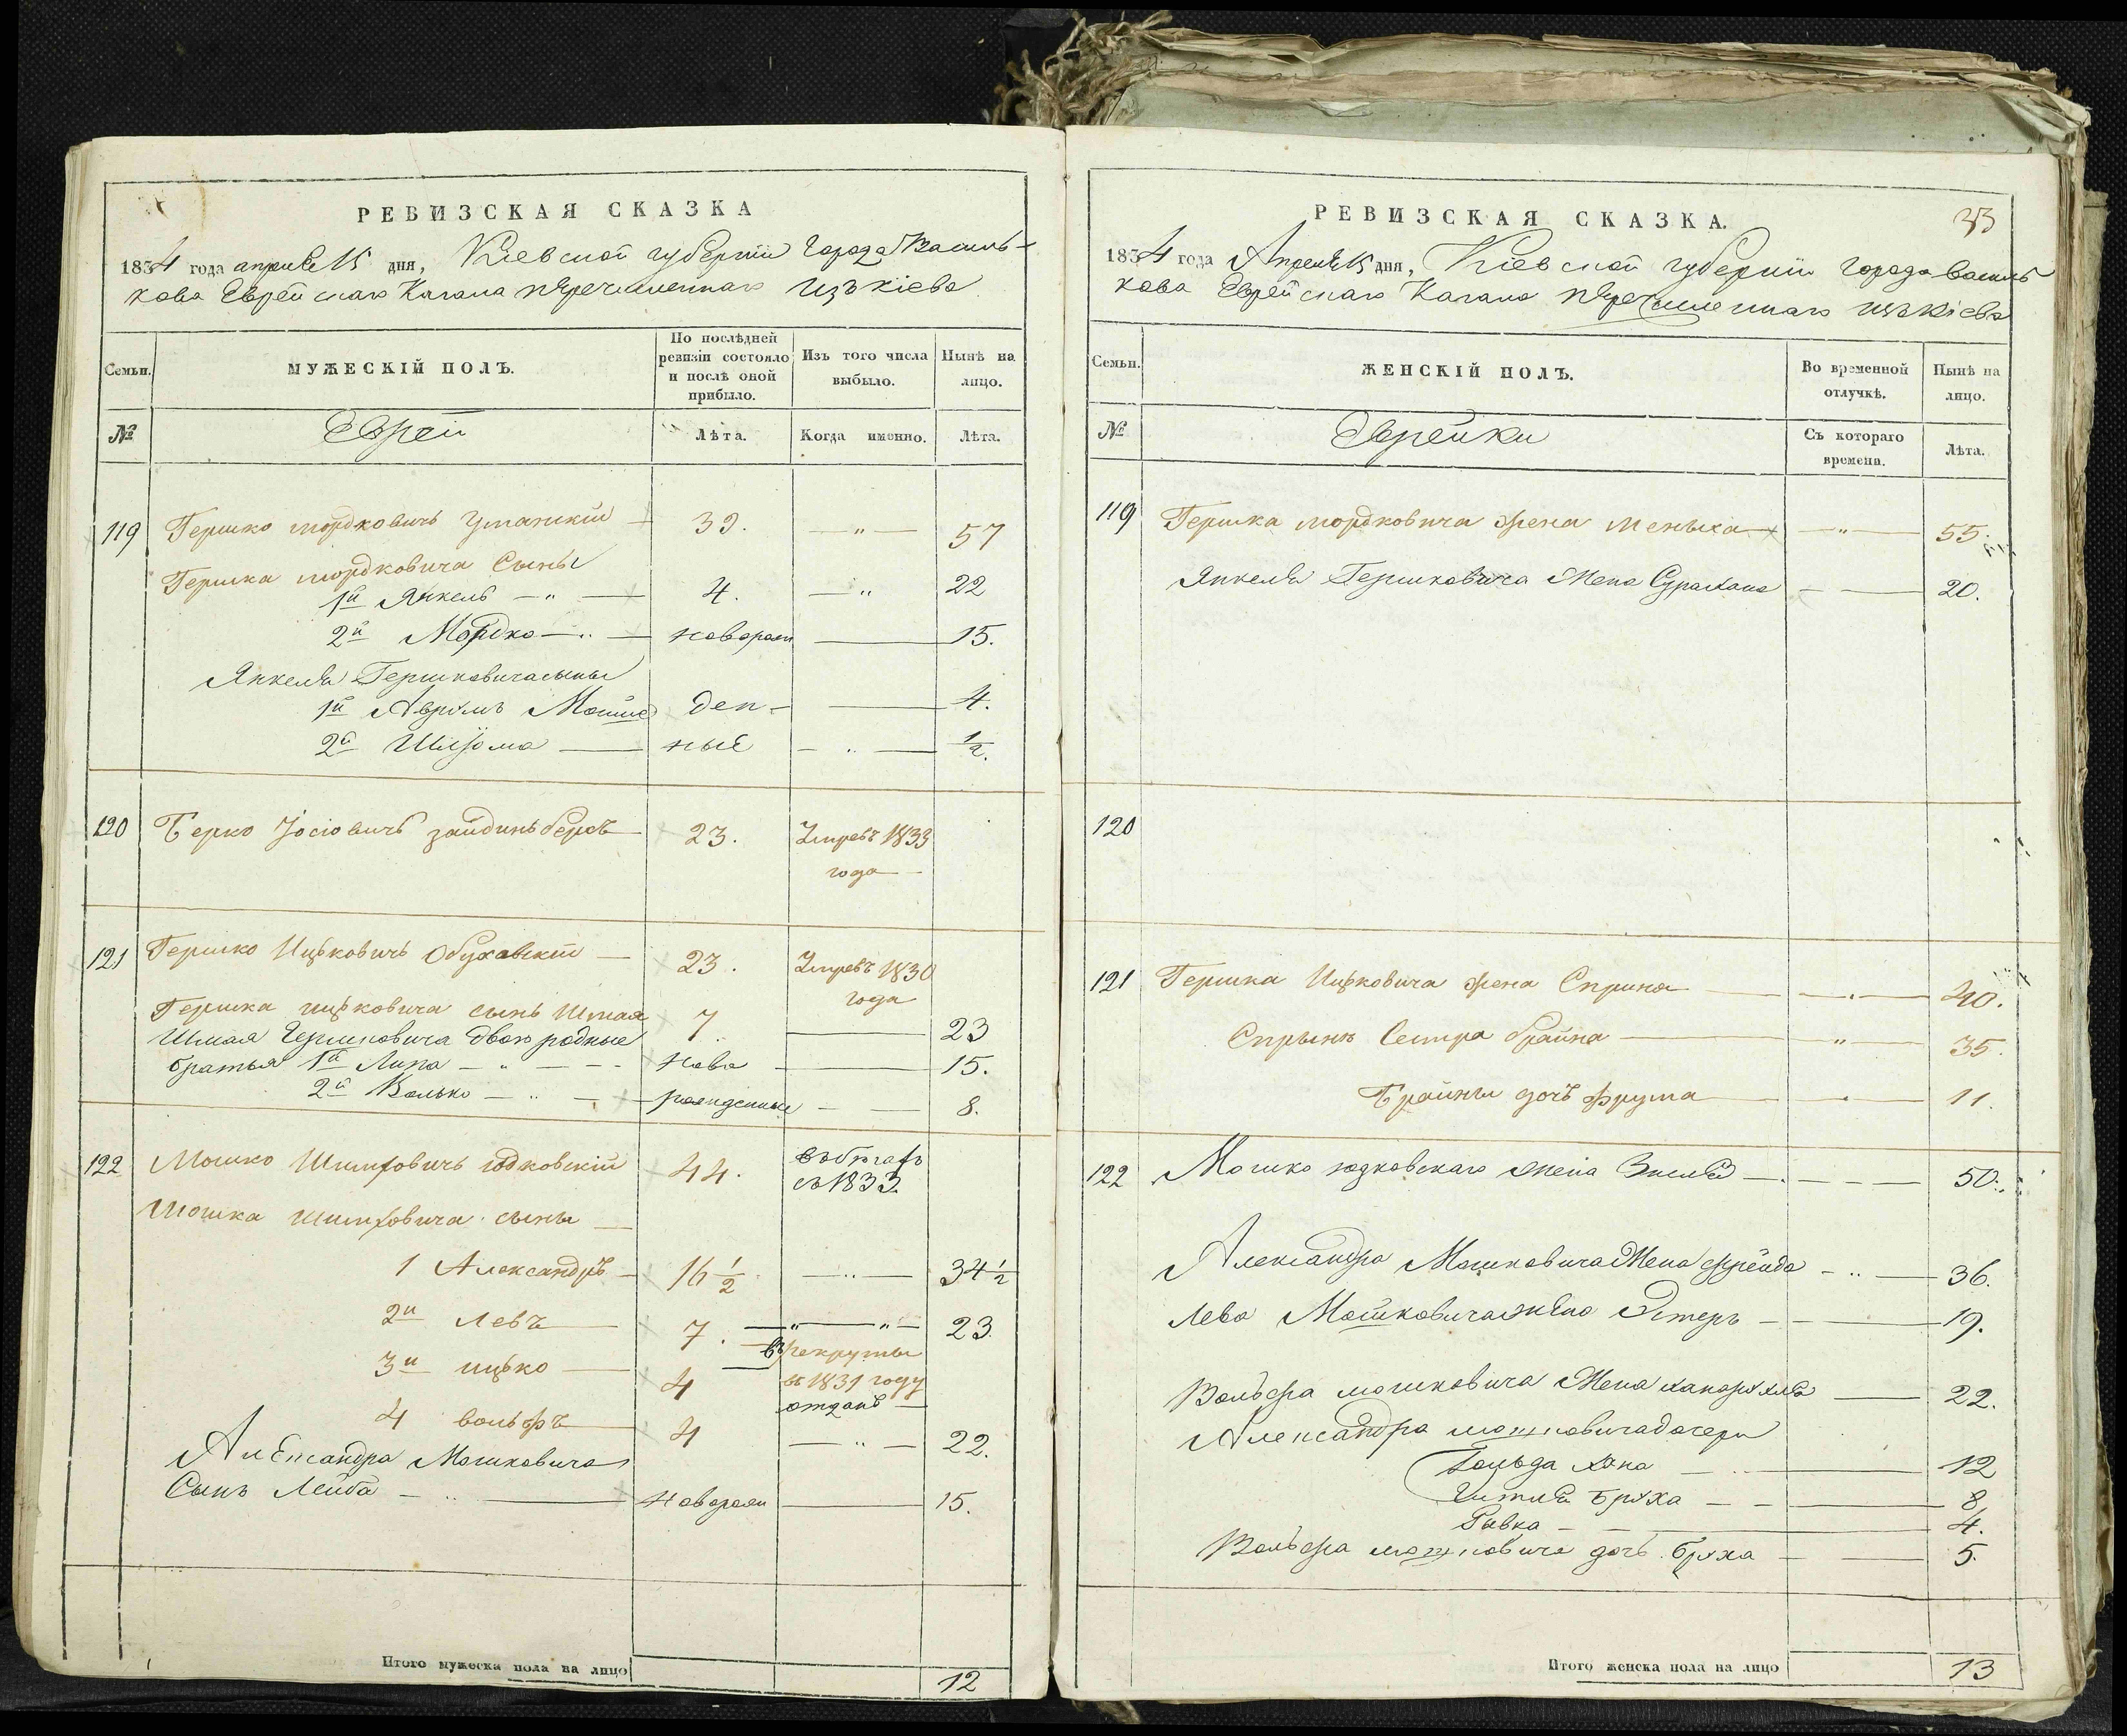 РЕВИЗСКАЯ СКАЗКА
1834 года апреля 15 дня, Киевской губернии города Василь-
кова Еврейскаго Кагала перечисленнаго изъ Кіева
Семьи.
МУЖЕСКІЙ ПОЛЪ.
По послѣдней ревизіи состояло и послѣ оной прибыло.
Изъ того числа выбыло.
Нынѣ на лицо.
№
Евреи
Лѣта.
Когда именно.
Лѣта.
119 Гершко Мордковичъ Уманскій 39. — " — 57
Гершка Мордковича Сыны
1й Янкель — " — 4. — " 22
2й Мордко — " — новорож 15.
Янкеля Гершковича сыны
1й Аврумъ Мошко ден- 4.
2й Шлёома ные — " — 1/2.
120 Берко Іосіовичъ Зайдинберъ 23. Умре въ 1833
года
121 Гершко Ицьковичъ Обуховскій — 23. Умре въ 1830
года
Гершка ицьковича сынъ Шмая 7 23
Шмая Гершковича двоюродные
братья 1й Липа — " — нова 15.
2й Волько — " — рожденные — 8.
122 Мошко Шимховичъ юдковскій 44. въ бегахъ
съ 1833
Мошка Шимховича сыны
1 Александръ 16 1/2 — " — 34 1/2
2й Левъ 7. — " — " — 23.
3й ицько 4 въ рекруты
въ 1831 году
отданъ
4 вольфъ 4 — " — 22.
Александра Мошковича
Сынъ Лейба — " — новорож 15.
Итого мужеска пола на лицо 12
РЕВИЗСКАЯ СКАЗКА.
33
1834 года Апреля 15 дня, Киевской губернии города Василь
кова Еврейскаго Кагала перечисленнаго изъ Кіева
Семьи.
ЖЕНСКІЙ ПОЛЪ.
Во временной отлучкѣ.
Нынѣ на лицо.
№
Еврейки
Съ котораго времени.
Лѣта.
119 Гершка Мордковича жена Меньиха — " — 55.
Янкеля Гершковича жена 20.
120
121 Гершка Ицьковича жена Сприна 40.
Спрыны Сестра брайна — " — 35.
Брайны дочь фрума 11.
122 Мошко юдковскаго жена 50.
Александра Мошковича Жена фрейда — " — 36.
Лева Мошковича жена Эстеръ 19.
Вольфа мошковича Жена 22.
Александра мошковича дочери
Хана — " — 12
Гитля Бруха — 8
Ривка — 4.
Вольфа мошковича дочь Бруха — 5.
Итого женска пола на лицо 13